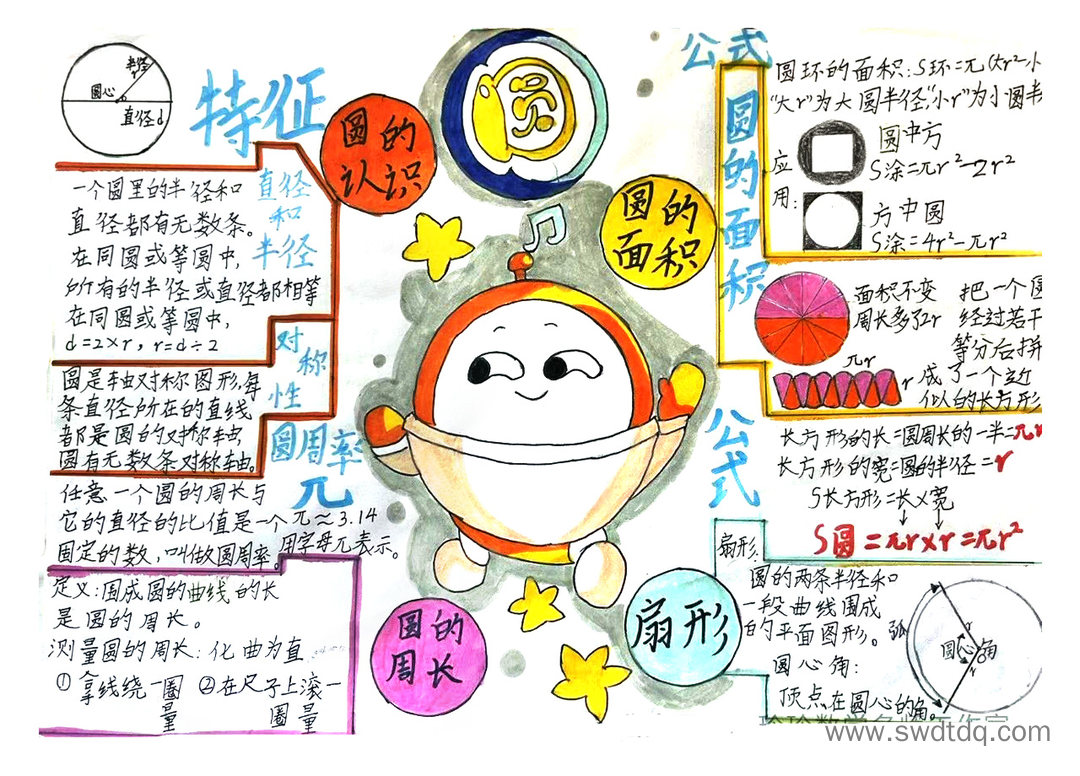 半径
r
圆心
O
直径d
特征
圆的
认识
圆
直径
和
半径
一个圆里的半径和
直径都有无数条。
在同圆或等圆中，
所有的半径或直径都相等
在同圆或等圆中，
d=2×r，r=d÷2
对
称
性
圆是轴对称图形，每
条直径所在的直线
都是圆的对称轴，
圆有无数条对称轴。
圆周率
π
任意一个圆的周长与
它的直径的比值是一个
固定的数，叫做圆周率。
π≈3.14
用字母π表示。
定义：围成圆的曲线的长
是圆的周长。
测量圆的周长：化曲为直
①拿线绕一圈量
②在尺子上滚一圈量
圆的
周长
圆的
面积
公式
圆的面积
圆环的面积：S环=π（大r²-小
“大r”为大圆半径，“小r”为小圆半
应用：
圆中方
S涂=πr²-2r²
方中圆
S涂=4r²-πr²
面积不变
周长多了2r
πr
r
把一个圆
经过若干
等分后拼
成了一个近
似的长方形
公式
长方形的长=圆周长的一半=πr
长方形的宽=圆的半径=r
S长方形=长×宽
S圆=πr×r=πr²
扇形
扇形：
圆的两条半径和
一段曲线围成
的平面图形。
圆心角：
顶点在圆心的角。
弧
r
圆心角
r
www.swdtdq.com